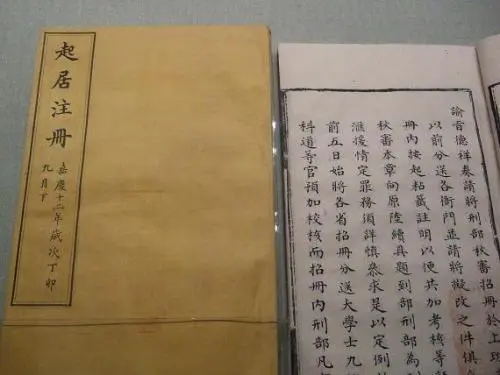 起居注冊
嘉慶十二年歲次丁卯
九月下
諭旨德祥奏請將刑部秋審招冊於上班
以前分送各衙門並請將擬改之件俱
冊內按起粘簽註明以便共加考核等語
秋審本章向原陸續具題到部刑部為
滙後情定罪務須詳慎叅求是以定例
前五日始將各省招冊分送大學士九
科道等官預加校核而招冊內刑部凡